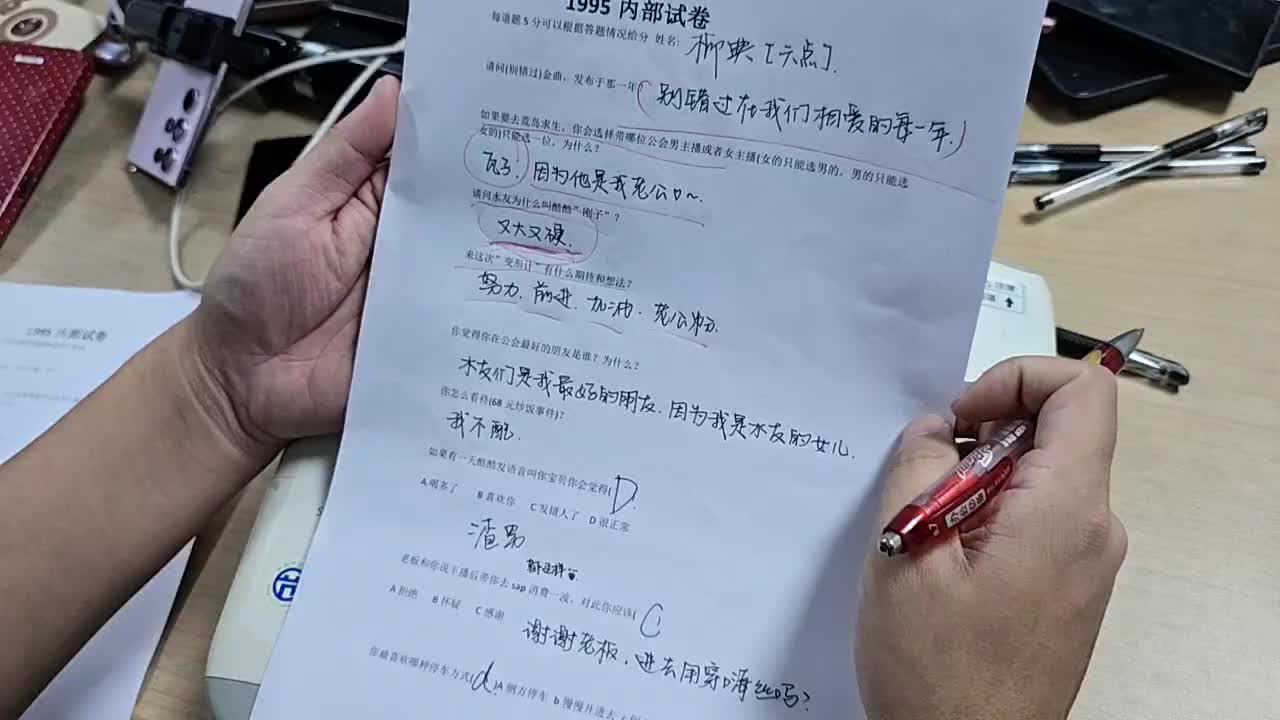 1995 内部试卷
每道题 5 分可以根据答题情况给分 姓名: 柳典[六点].
请问(别错过)金曲，发布于那一年( 别错过在我们相爱的每一年.)
如果要去荒岛求生，你会选择带哪位公会男主播或者女主播(女的只能选男的，男的只能选
女的)只能选一位，为什么？
瓦子. 因为他是我老公~.
请问水友为什么叫酷酷"刚子"？
又大又硬.
来这次"变形计"有什么期待和想法？
努力. 前进. 加油. 老公粉.
你觉得你在公会最好的朋友是谁？为什么？
水友们是我最好的朋友. 因为我是水友的女儿.
你怎么看待(68 元炒饭事件)？
我不配.
如果有一天酷酷发语音叫你宝贝你会觉得( D.
A 喝多了 B 喜欢你 C 发错人了 D 很正常
渣男
老板和你说下播后带你去 sap 消费一波，对此你应该( C
A 拒绝 B 怀疑 C 感谢
谢谢老板，进去用穿嗨丝吗?
你最喜欢哪种停车方式( d.)A 侧方停车 b 慢慢开进去
1995 内部试卷